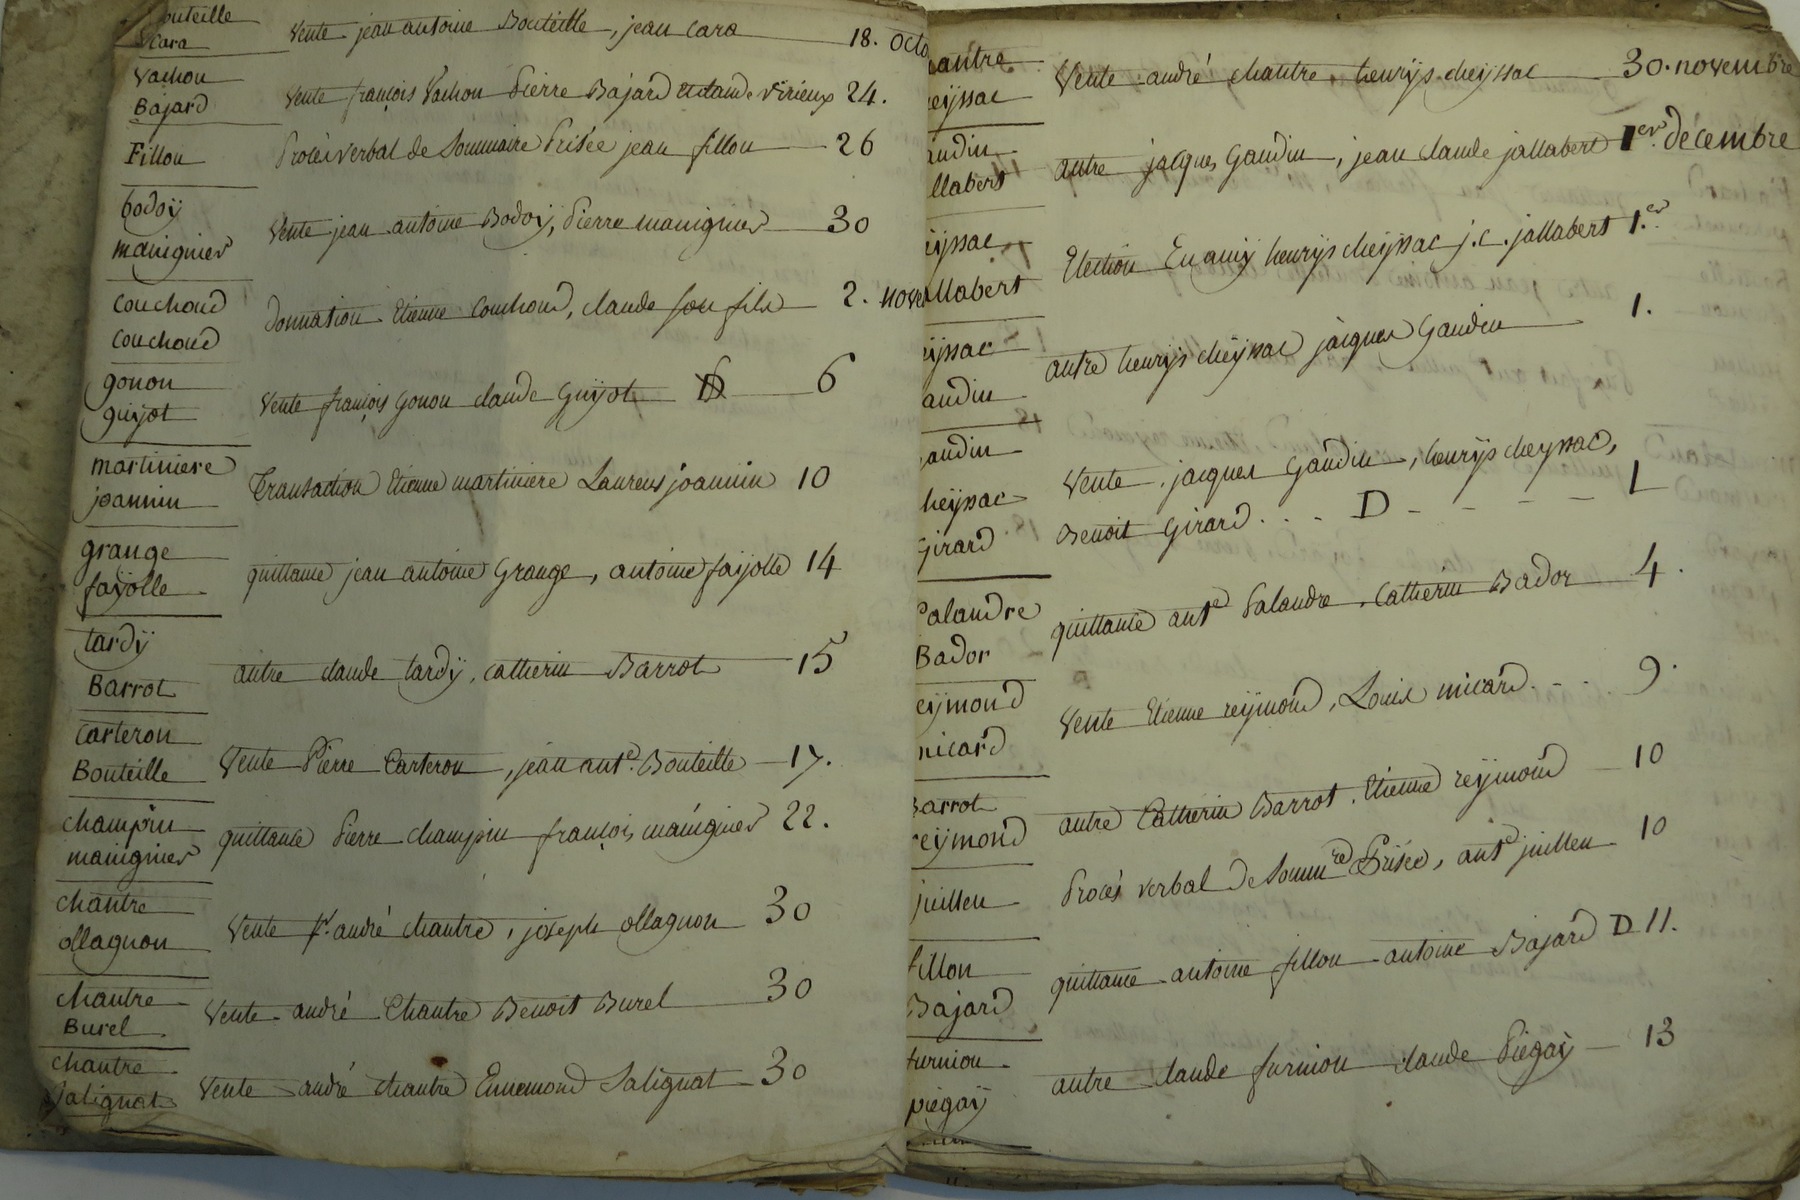 outeille
Cara
Vente jean antoine Bouteille, jean Cara 18. Octo
Vachon
Bajard
Vente françois Vachon Pierre Bajard et claude Virieux 24.
Fillon
Procès verbal de Sommaire Prisée jean fillon 26
bodoÿ
manignier
Vente jean antoine Bodoÿ, Pierre manignier 30
Couchoud
Couchoud
Donnation Etienne Couchoud, claude son fils 2. nove
gonon
guÿot
Vente françois gonon claude Guÿot D 6
martiniere
joannin
Transaction Etienne martiniere Laurens joannin 10
grange
faÿolle
quittance jean antoine Grange, antoine faÿolle 14
tardÿ
Barrot
autre claude tardÿ, catherin Barrot 15
Carteron
Bouteille
Vente Pierre Carteron, jean ant.e Bouteille 17.
champin
manignier
quittance Pierre champin françois manignier 22.
chantre
ollagnon
Vente Sr. andré chantre, joseph ollagnon 30
chantre
Burel
Vente andré Chantre Benoit Burel 30
chantre
Salignat
Vente andré chantre Ennemond Salignat 30
antre
eÿssac
Vente andré chantre henrÿs cheyssac 30. novembre
audin
llabert
autre jacques Gaudin, jean claude jallabert 1er. décembre
eÿssac
allabert
Election En amÿ henrÿs cheÿssac j.c. jallabert 1.er
eÿssac
audin
autre henrÿs cheÿssac jacques Gaudin 1.
audin
heÿssac
Girard
Vente jacques Gaudin, henrÿs cheyssac,
Benoit Girard D 1
Palandre
Bador
quittance ant.e Palandre, Catherin Bador 4.
eÿmond
micard
Vente Etienne reÿmond, Louis micard 9.
Barrot
reÿmond
autre Catherin Barrot, Etienne reÿmond 10
juillen
Procès verbal de Somm.re Prisée, ant.e juillen 10
fillon
Bajard
quittance antoine fillon antoine Bajard D 11.
furnion
piegaÿ
autre claude furnion claude Piegaÿ 13